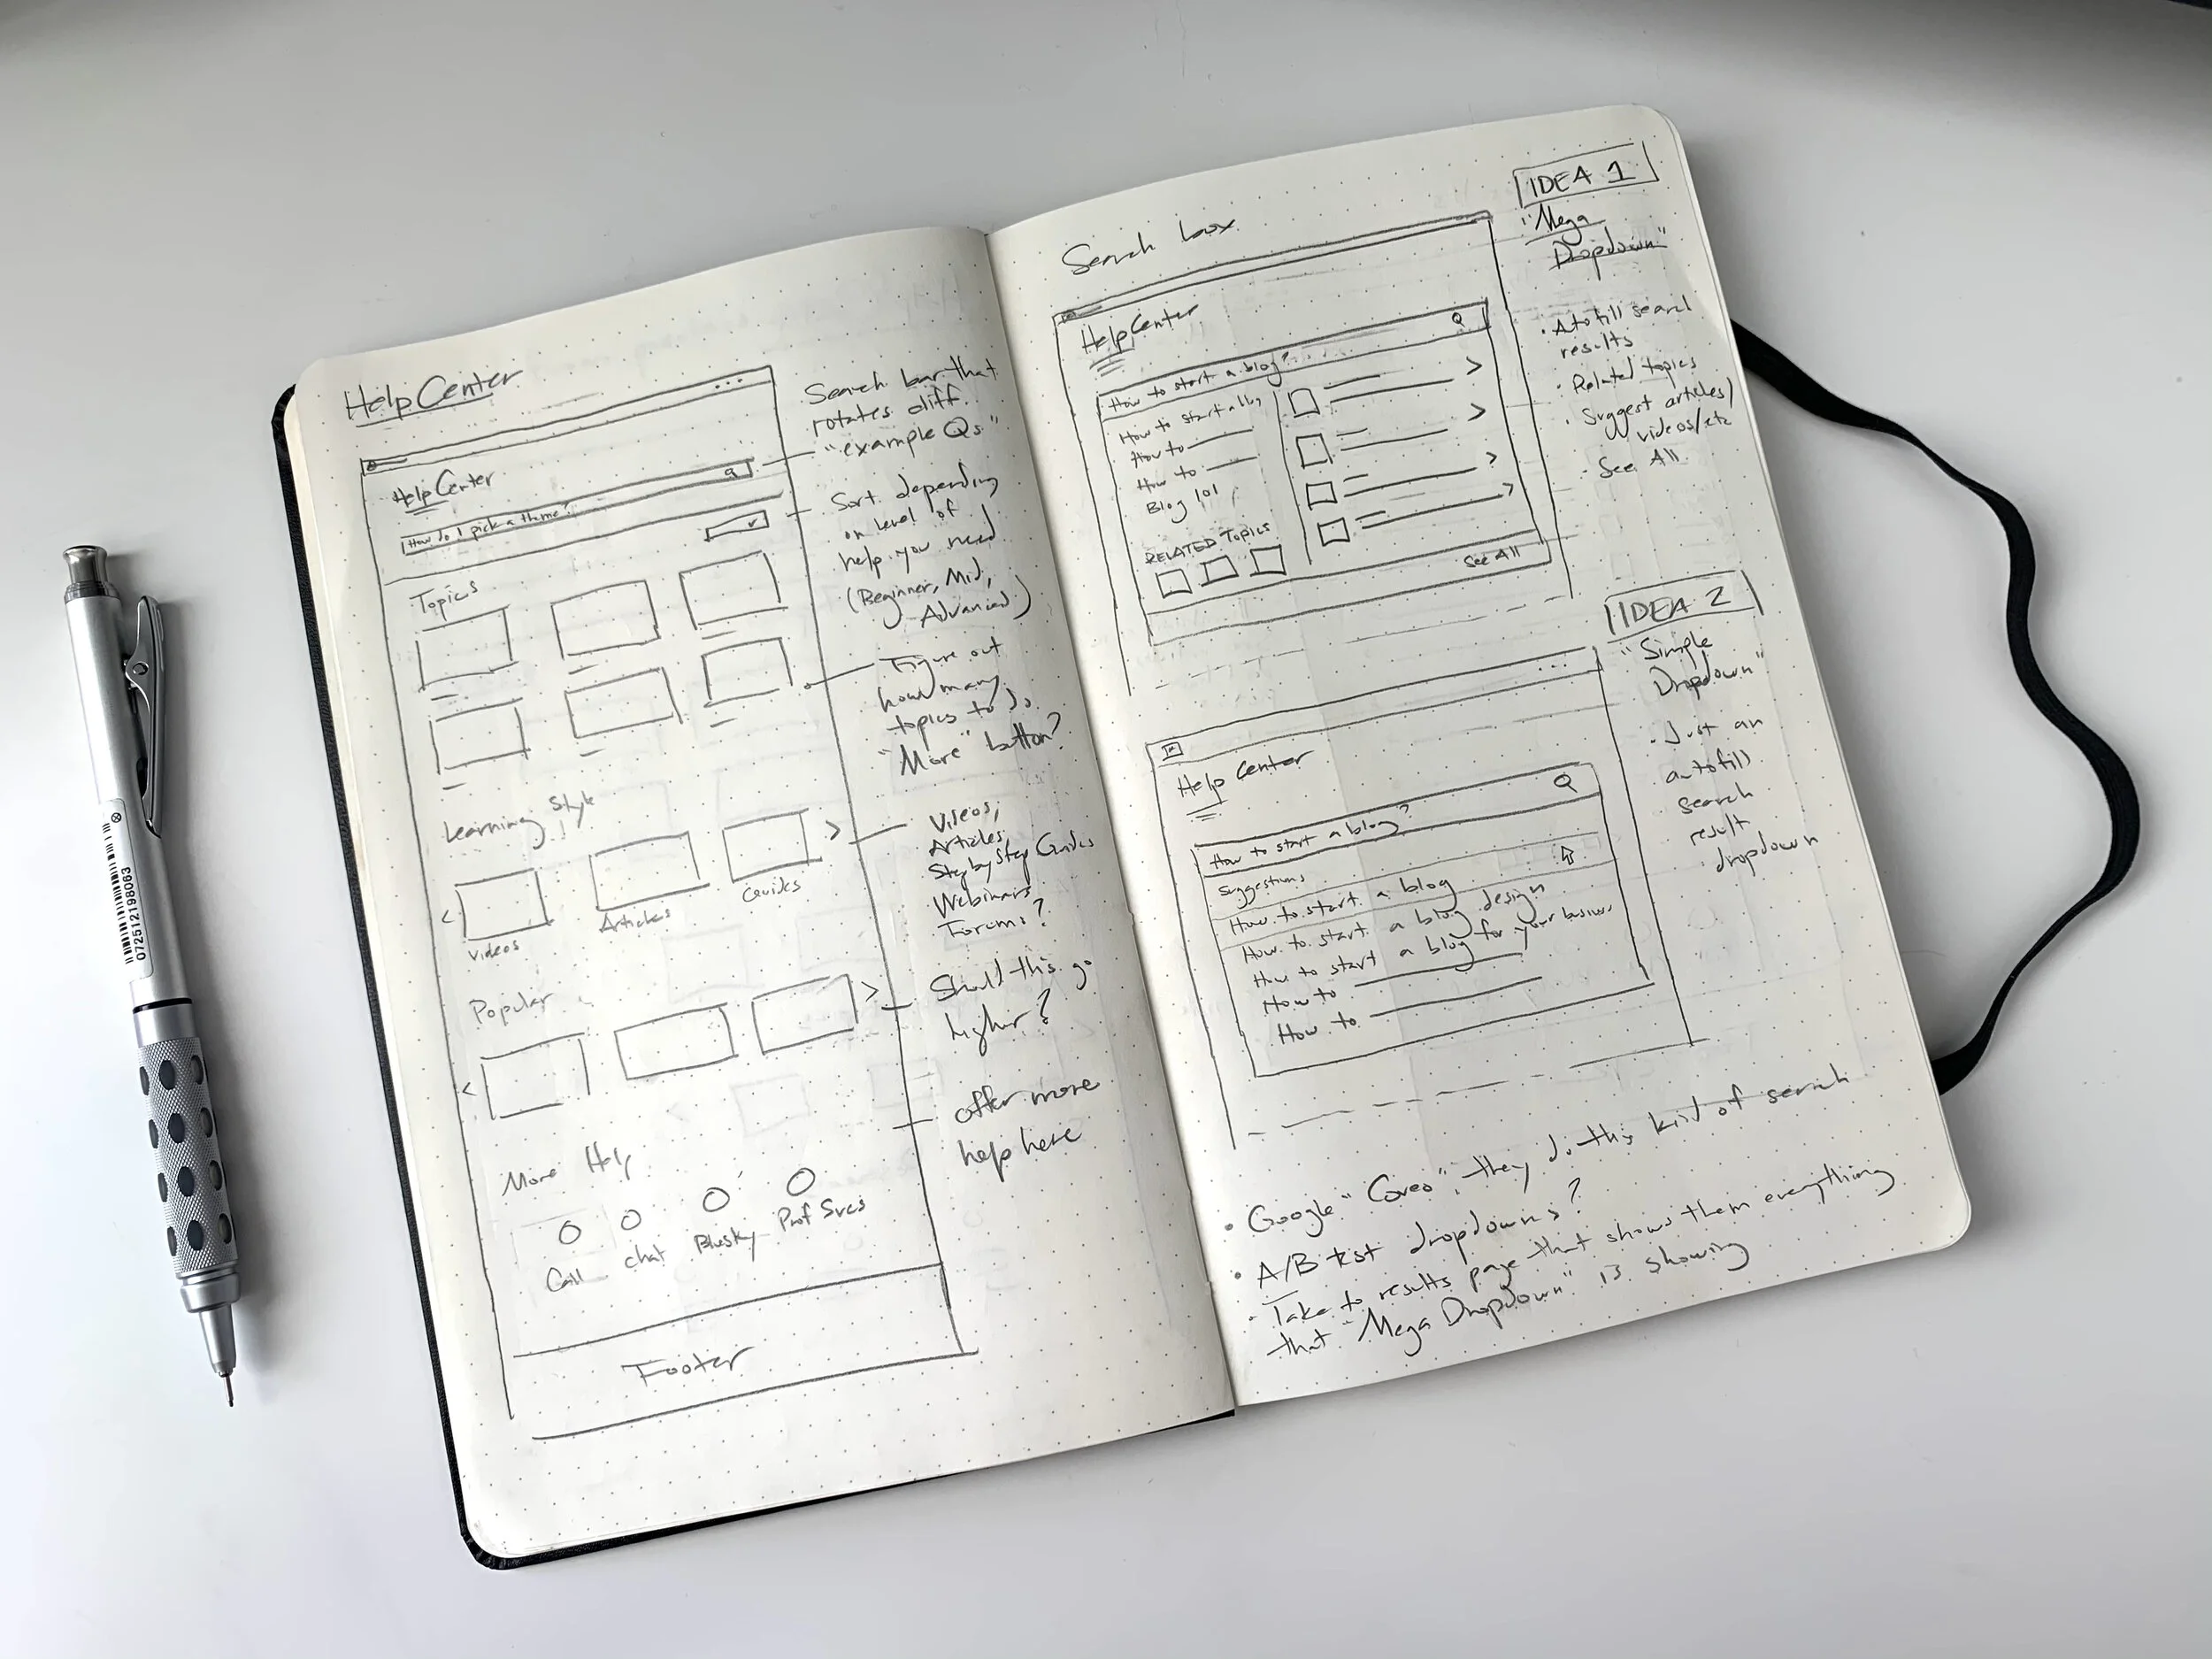 Help Center
Help Center
How do I pick a theme?
Topics
Learning Style
Videos
Articles
Guides
Popular
More Help
Call
chat
Blusky
Prof Svcs
Footer
Search bar that
rotates diff.
"example Qs"
Sort depending
on level of
help you need
(Beginner, Mid,
Advanced)
Figure out
how many
topics to do.
"More" button?
Videos,
Articles,
Step by Step Guides
Webinars
Forums?
Should this go
higher?
offer more
help here
Search box
Help Center
How to start a blog?
How to start a blog
How to
How to
Blog 101
RELATED TOPICS
See All
IDEA 1
"Mega
Dropdown"
• Autofill search
results
• Related topics
• Suggest articles/
videos/etc
• See All
Help Center
How to start a blog?
Suggestions
How to start a blog
How to start a blog design
How to start a blog for your business
How to
How to
IDEA 2
"Simple
Dropdown"
• Just an
autofill
search
result
dropdown
• Google "Coveo", they do this kind of search
• A/B test dropdowns?
• Take to results page that shows them everything
that "Mega Dropdown" is showing
072512198063